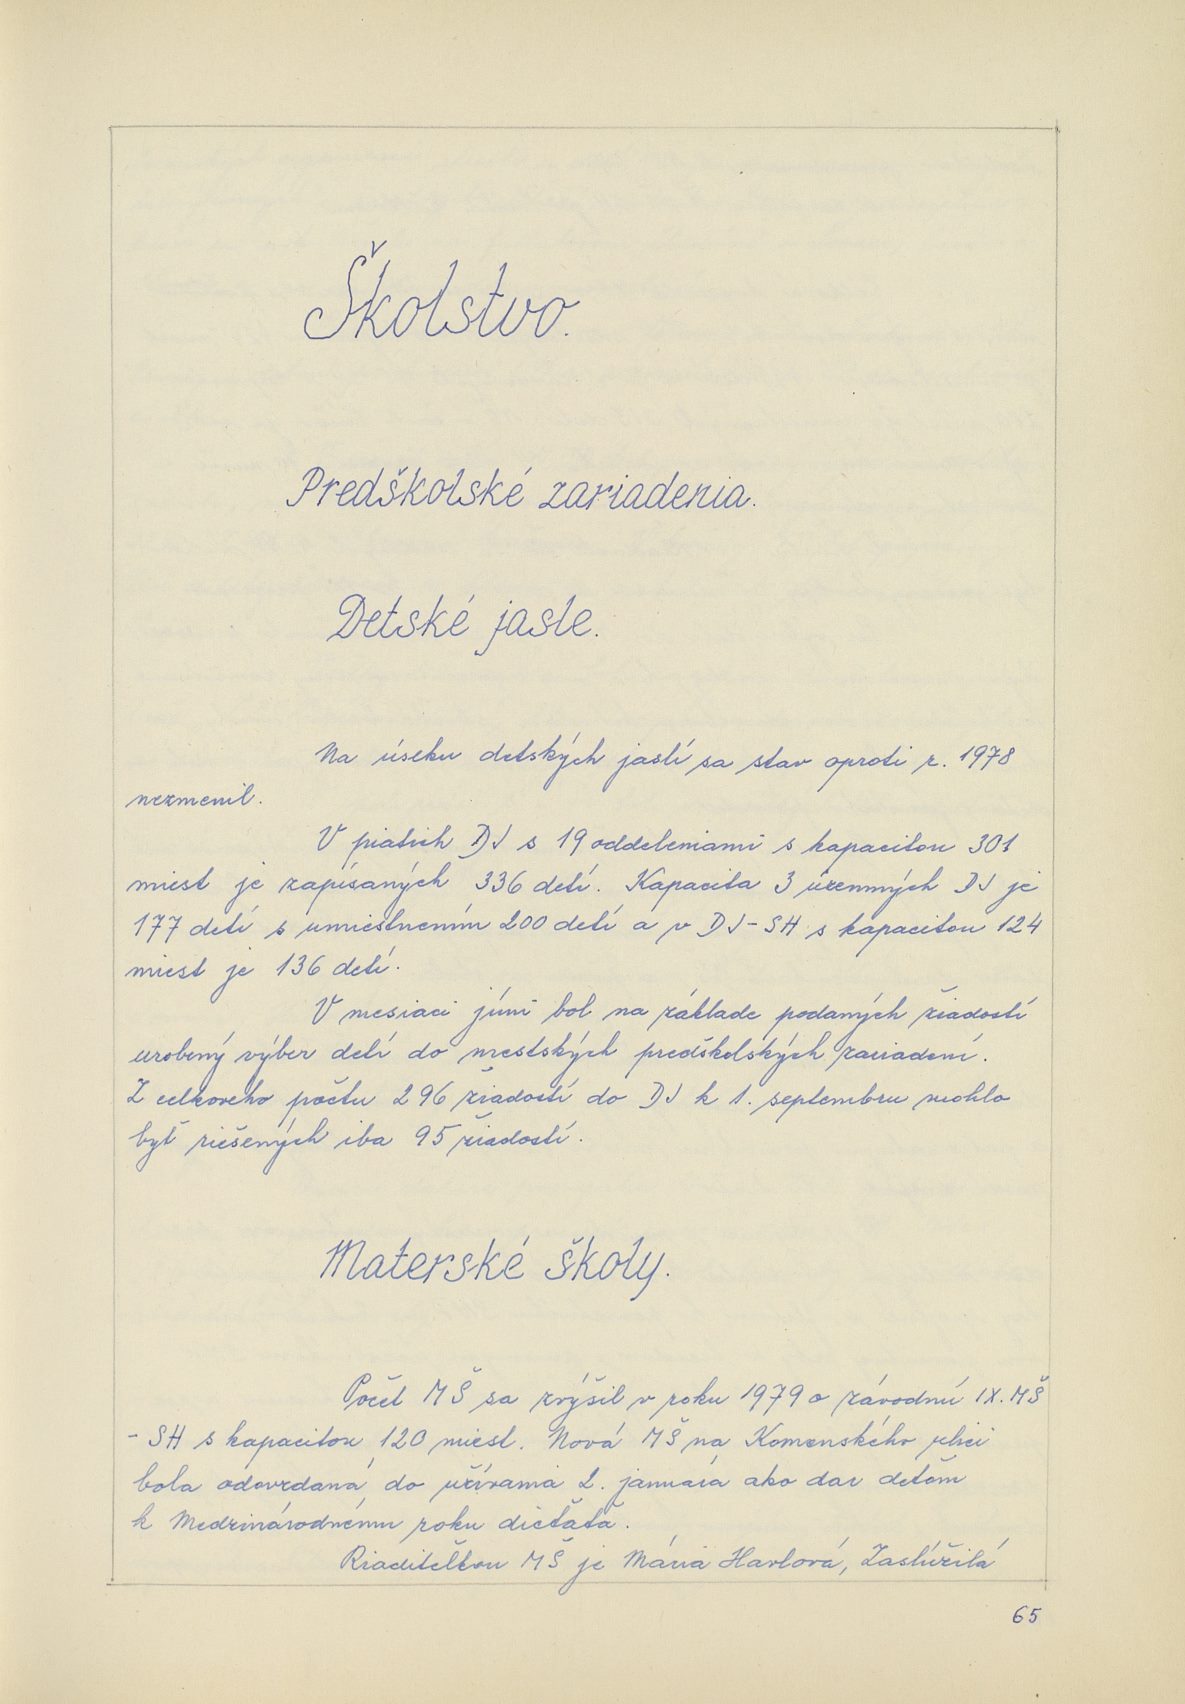 Školstvo.
Predškolské zariadenia.
Detské jasle.
Na úseku detských jaslí sa stav oproti r. 1978
nezmenil.
V piatich DJ s 19 oddeleniami s kapacitou 301
miest je zapísaných 336 detí. Kapacita 3 územných DJ je
177 detí s umiestnením 200 detí a v DJ-SH s kapacitou 124
miest je 136 detí.
V mesiaci júni bol na základe podaných žiadostí
urobený výber detí do mestských predškolských zariadení.
Z celkového počtu 296 žiadostí do DJ k 1. septembru mohlo
byť riešených iba 95 žiadostí.
Materské školy.
Počet MŠ sa zvýšil v roku 1979 o závodnú IX. MŠ
- SH s kapacitou 120 miest. Nová MŠ na Komenského ulici
bola odovzdaná do užívania 2. januára ako dar deťom
k Medzinárodnému roku dieťaťa.
Riaditeľkou MŠ je Mária Havlová, Zaslúžilá
65